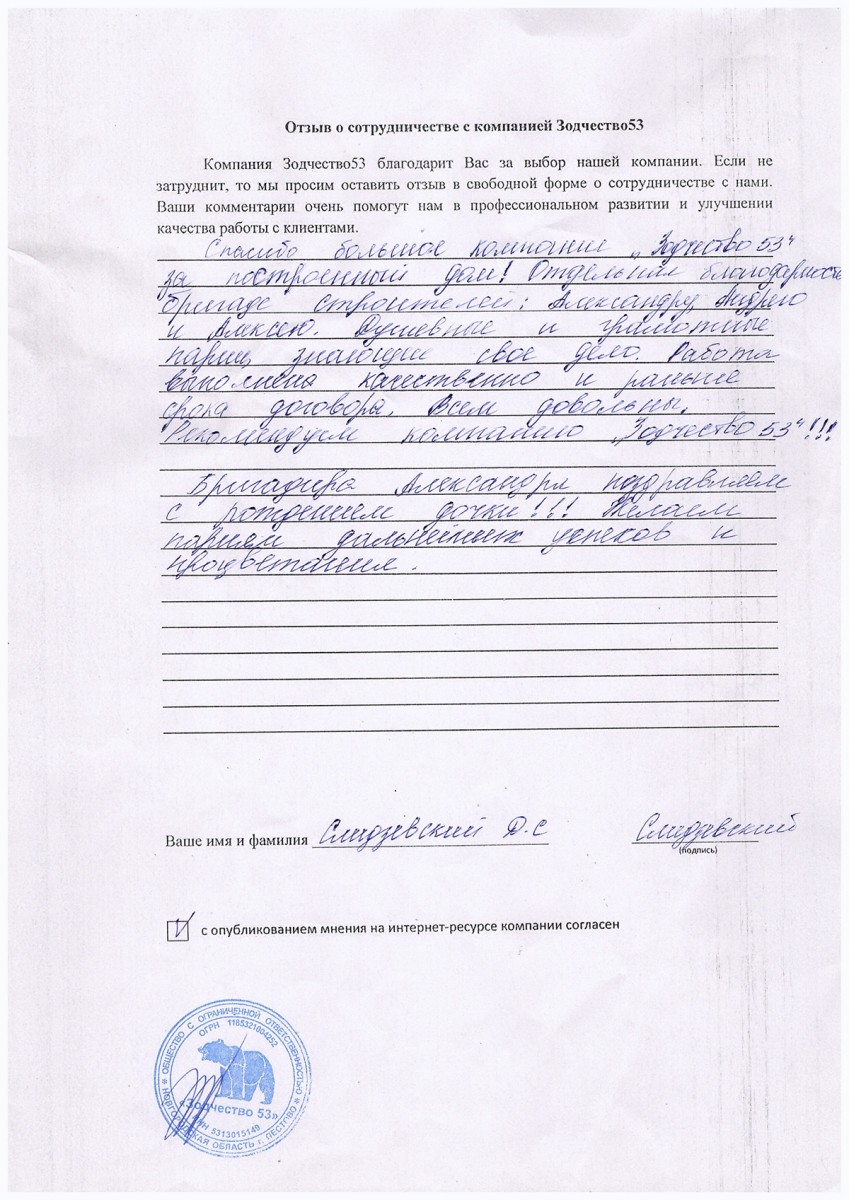 Отзыв о сотрудничестве с компанией Зодчество53
Компания Зодчество53 благодарит Вас за выбор нашей компании. Если не
затруднит, то мы просим оставить отзыв в свободной форме о сотрудничестве с нами.
Ваши комментарии очень помогут нам в профессиональном развитии и улучшении
качества работы с клиентами.
Спасибо большое компании „Зодчество 53“
за построенный дом! Отдельная благодарность
бригаде строителей: Александру, Андрею
и Алексею. Душевные и грамотные
парни, знающие свое дело. Работа
выполнена качественно и раньше
срока договора. Всем довольны.
Рекомендуем компанию „Зодчество 53“!!!
Бригадира Александра поздравляем
с рождением дочки!!! Желаем
парням дальнейших успехов и
процветания.
Ваше имя и фамилия Слидзевский Д.С Слидзевский
(подпись)
с опубликованием мнения на интернет-ресурсе компании согласен
ОБЩЕСТВО С ОГРАНИЧЕННОЙ ОТВЕТСТВЕННОСТЬЮ
ОГРН 1185321004252
«Зодчество 53»
ИНН 5313015149
НОВГОРОДСКАЯ ОБЛАСТЬ г. ПЕСТОВО